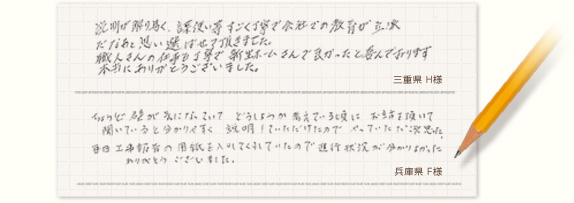 説明が解り易く、言葉使い等すごく丁寧で会社での教育が立派
だなあと思い選ばせて頂きました。
職人さんの仕事も丁寧で新生ホームさんで良かったと喜んでおります
本当にありがとうございました。
三重県 H様
ちょうど壁が気になっていて どうしようか考えている頃に お話を頂いて
聞いていると分かりやすく 説明していただけたので やっていただこうと
毎日工事報告の用紙を入れてくれていたので進行状況が分かりよかった
ありがとうございました。
兵庫県 F様